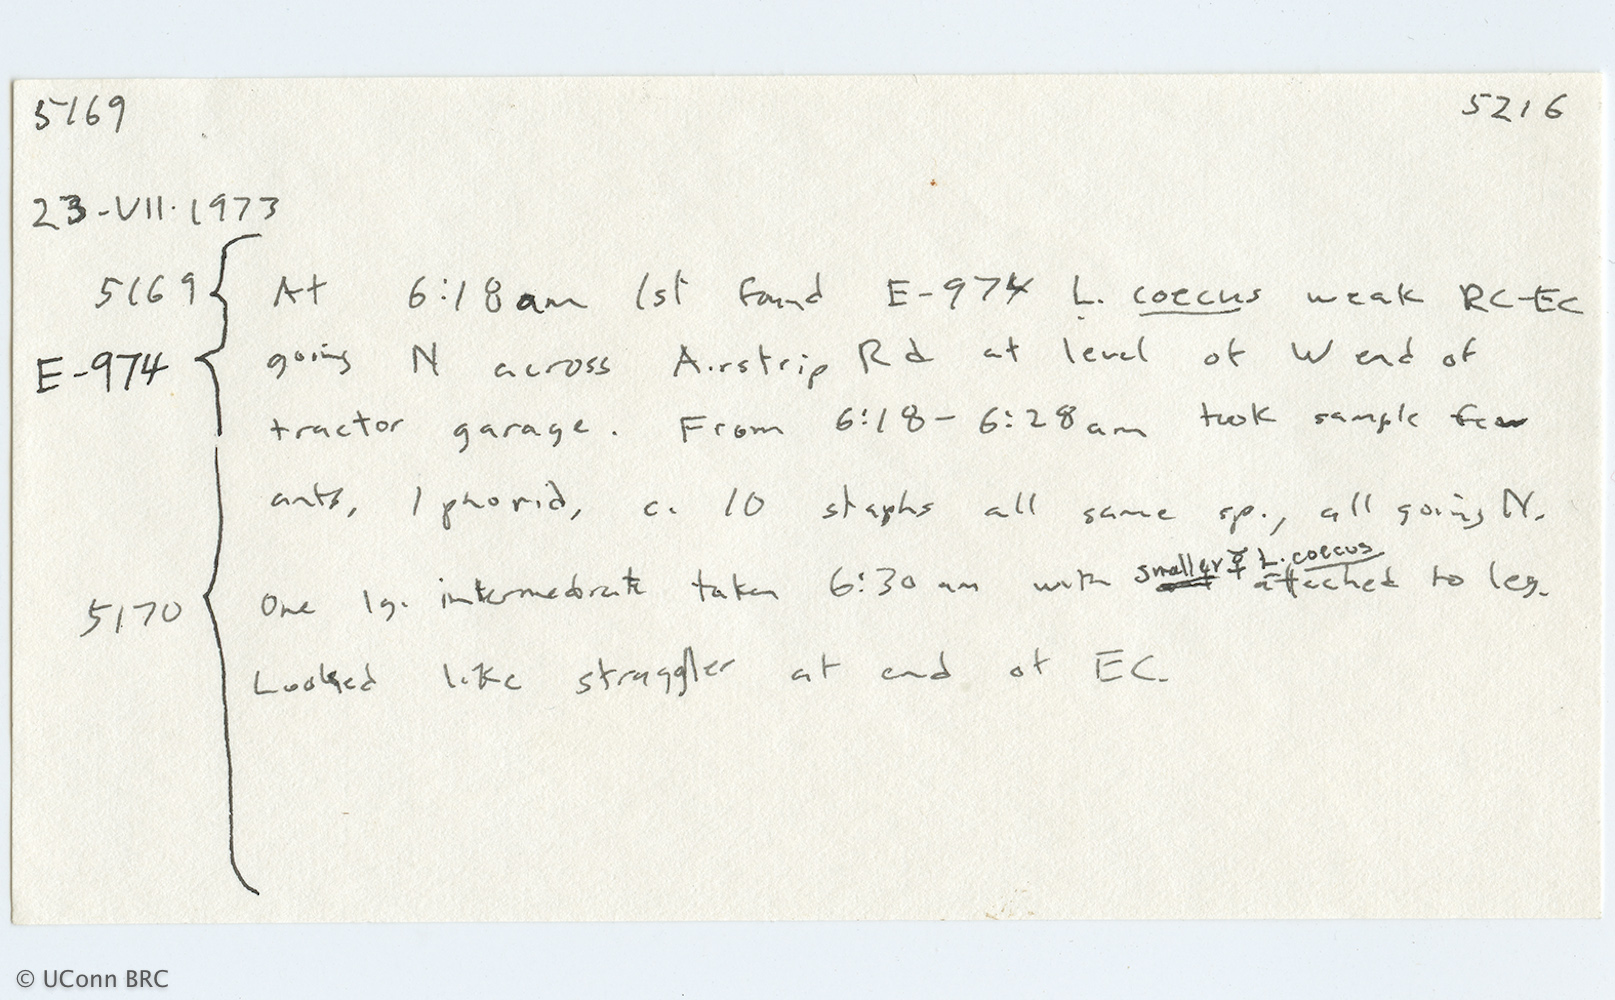 5169 5216
23-VII-1973
5169 At 6:18am 1st found E-974 L. coecus weak RC-EC
E-974 going N across Airstrip Rd at level of W end of
tractor garage. From 6:18-6:28am took sample few
ants, 1 phorid, c. 10 staphs all same sp., all going N.
smaller ☿ L. coecus
5170 One lg. intermediate taken 6:30 am with attached to leg.
Looked like straggler at end of EC.
© UConn BRC